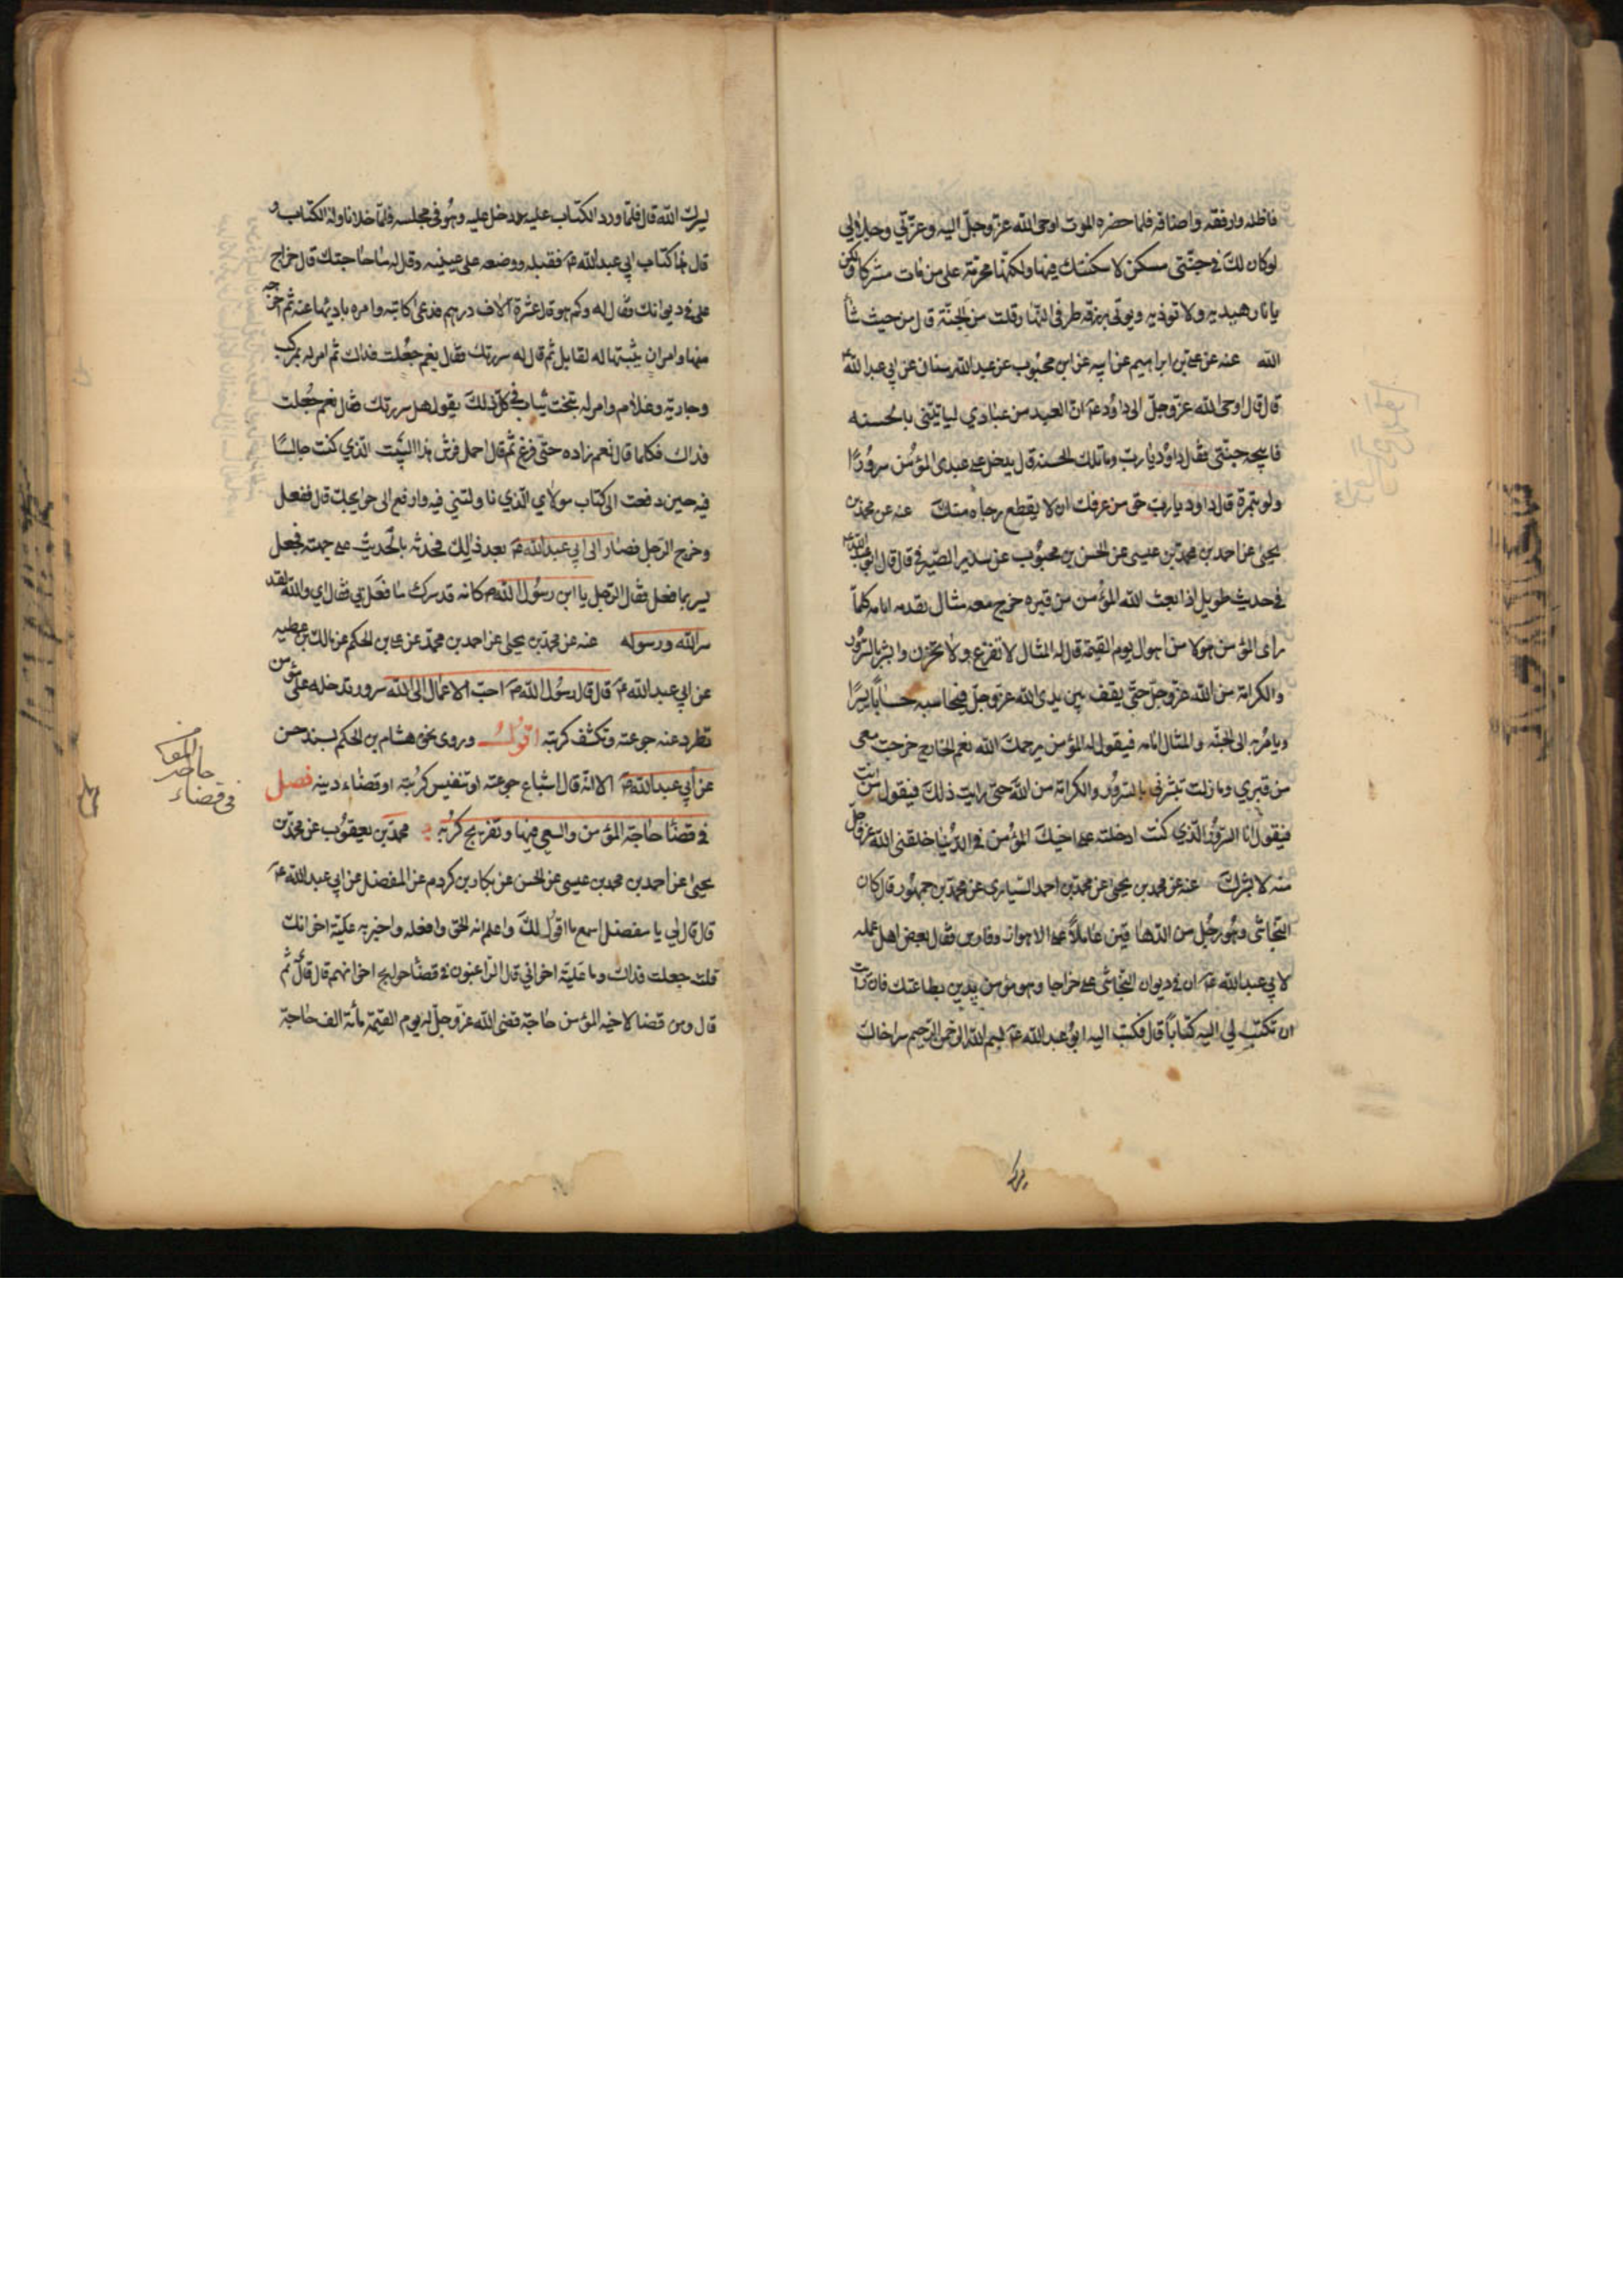 فاظله وارفقه واضافه فلما حضره الموت اوحى الله عز وجل اليه وعزتي وجلالي
لو كان لك في جنتي مسكن لاسكنتك فيها ولكنها محرمة على من مات مشركا ولكن
يا نار هيديه ولا توذيه ويوتى برزقه طرفي النهار قلت من الجنة قال من حيث شاء
الله عنه عن علي بن ابراهيم عن ابيه عن ابن محبوب عن عبد الله بن سنان عن ابي عبد الله ع
قال قال اوحى الله عز وجل الى داود ع ان العبد من عبادي لياتيني بالحسنه
فابيحه جنتي فقال داود يا رب وما تلك الحسنه قال يدخل على عبدي المؤمن سرورا
ولو بتمرة قال داود يا رب حق من عرفك ان لا يقطع رجاه منك عنه عن محمد بن
يحيى عن احمد بن محمد بن عيسى عن الحسن بن محبوب عن سدير الصيرفي قال قال ابو عبد الله ع
في حديث طويل اذا بعث الله المؤمن من قبره خرج معه مثال يقدمه امامه كلما
راى المؤمن هولا من اهوال يوم القيمة قال له المثال لا تفزع ولا تحزن وابشر بالسرور
والكرامة من الله عز وجل حتى يقف بين يدي الله عز وجل فيحاسبه حسابا يسيرا
ويامر به الى الجنة والمثال امامه فيقول له المؤمن يرحمك الله نعم الخارج خرجت معي
من قبري وما زلت تبشرني بالسرور والكرامة من الله حتى رايت ذلك فيقول من انت
فيقول انا السرور الذي كنت ادخلته على اخيك المؤمن في الدنيا خلقني الله عز وجل
منه لابشرك عنه عن محمد بن يحيى عن محمد بن احمد السياري عن محمد بن جمهور قال كان
النجاشي وهو رجل من الدهاقين عاملا على الاهواز وفارس فقال بعض اهل عمله
لابي عبد الله ع ان في ديوان النجاشي علي خراجا وهو مؤمن يدين بطاعتك فان رايت
ان تكتب لي اليه كتابا قال فكتب اليه ابو عبد الله ع بسم الله الرحمن الرحيم سر اخاك
يسرك الله قال فلما ورد الكتاب عليه دخل عليه وهو في مجلسه فلما خلا ناوله الكتاب و
قال هذا كتاب ابي عبد الله ع فقبله ووضعه على عينيه وقال له ما حاجتك قال خراج
علي في ديوانك فقال له وكم هو قال عشرة الاف درهم فدعى كاتبه وامره بادائها عنه ثم اخرجه
منها وامر ان يثبتها له لقابل ثم قال له سررتك فقال نعم جعلت فداك ثم امر له بمركب
وجارية وغلام وامر له بتخت ثياب في كل ذلك يقول هل سررتك فقال نعم جعلت
فداك فكلما قال نعم زاده حتى فرغ ثم قال احمل فرش هذا البيت الذي كنت جالسا
فيه حين دفعت الى كتاب مولاي الذي ناولتني فيه وارفع الى حوايجك قال ففعل
وخرج الرجل فصار الى ابي عبد الله ع بعد ذلك فحدثه بالحديث على جهته فجعل
يسر بما فعل فقال الرجل يا ابن رسول الله ص كانه قد سرك ما فعل بي فقال اي والله لقد
سر الله ورسوله عنه عن محمد بن يحيى عن احمد بن محمد عن علي بن الحكم عن مالك بن عطيه
عن ابي عبد الله ع قال قال رسول الله ص احب الاعمال الى الله سرور تدخله على مؤمن
تطرد عنه جوعته وتكشف كربته اقول وروى نحوه هشام بن الحكم بسند حسن
عن أبي عبد الله ع الا انه قال اشباع جوعته او تنفيس كربته او قضاء دينه فصل
في قضا حاجة المؤمن والسعي فيها وتفريج كربه محمد بن يعقوب عن محمد بن
يحيى عن احمد بن محمد بن عيسى عن الحسن عن بكار بن كردم عن المفضل عن ابي عبد الله ع
قال قال لي يا مفضل اسمع ما اقول لك واعلم انه الحق وافعله واخبر به علية اخوانك
قلت جعلت فداك وما علية اخواني قال الراغبون في قضا حوايج اخوانهم قال ثم قال
قال ومن قضا لاخيه المؤمن حاجة قضى الله عز وجل له يوم القيمة مأة الف حاجة
في قضاء